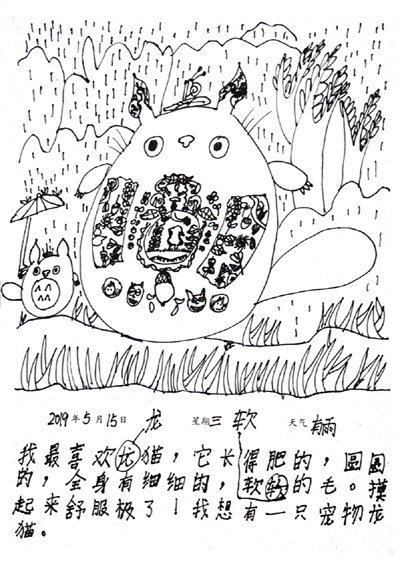 2019年5月15日 龙 星期三 软 天气 有雨
我最喜欢龙猫，它长得肥的，圆圆
的，全身有细细的，软软的毛。摸
起来舒服极了！我想有一只宠物龙
猫。